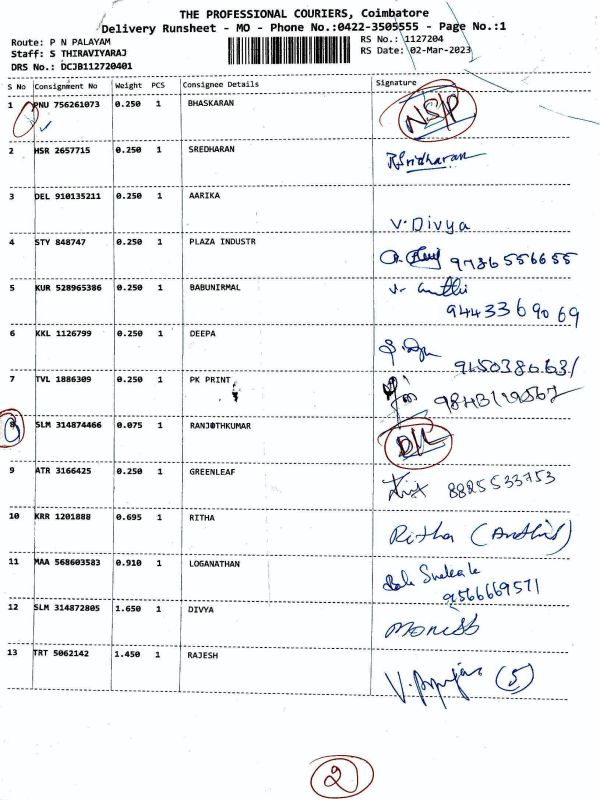 THE PROFESSIONAL COURIERS, Coimbatore
Delivery Runsheet - MO - Phone No.:0422-3505555 - Page No.:1
Route: P N PALAYAM RS No.: 1127204
Staff: S THIRAVIYARAJ RS Date: 02-Mar-2023
DRS No.: DCJB112720401
S No Consignment No Weight PCS Consignee Details Signature
1 PNU 756261073 0.250 1 BHASKARAN NSP
2 HSR 2657715 0.250 1 SREDHARAN RSridharan
3 DEL 910135211 0.250 1 AARIKA V. Divya
4 STY 848747 0.250 1 PLAZA INDUSTR 9786556655
5 KUR 528965386 0.250 1 BABUNIRMAL
9443369069
6 KKL 1126799 0.250 1 DEEPA
7 TVL 1886309 0.250 1 PK PRINT
8 SLM 314874466 0.075 1 RANJOTHKUMAR D/L
9 ATR 3166425 0.250 1 GREENLEAF 8825533753
10 KRR 1201888 0.695 1 RITHA Ritha
11 MAA 568603583 0.910 1 LOGANATHAN
9566669571
12 SLM 314872805 1.650 1 DIVYA
13 TRT 5062142 1.450 1 RAJESH (5)
2